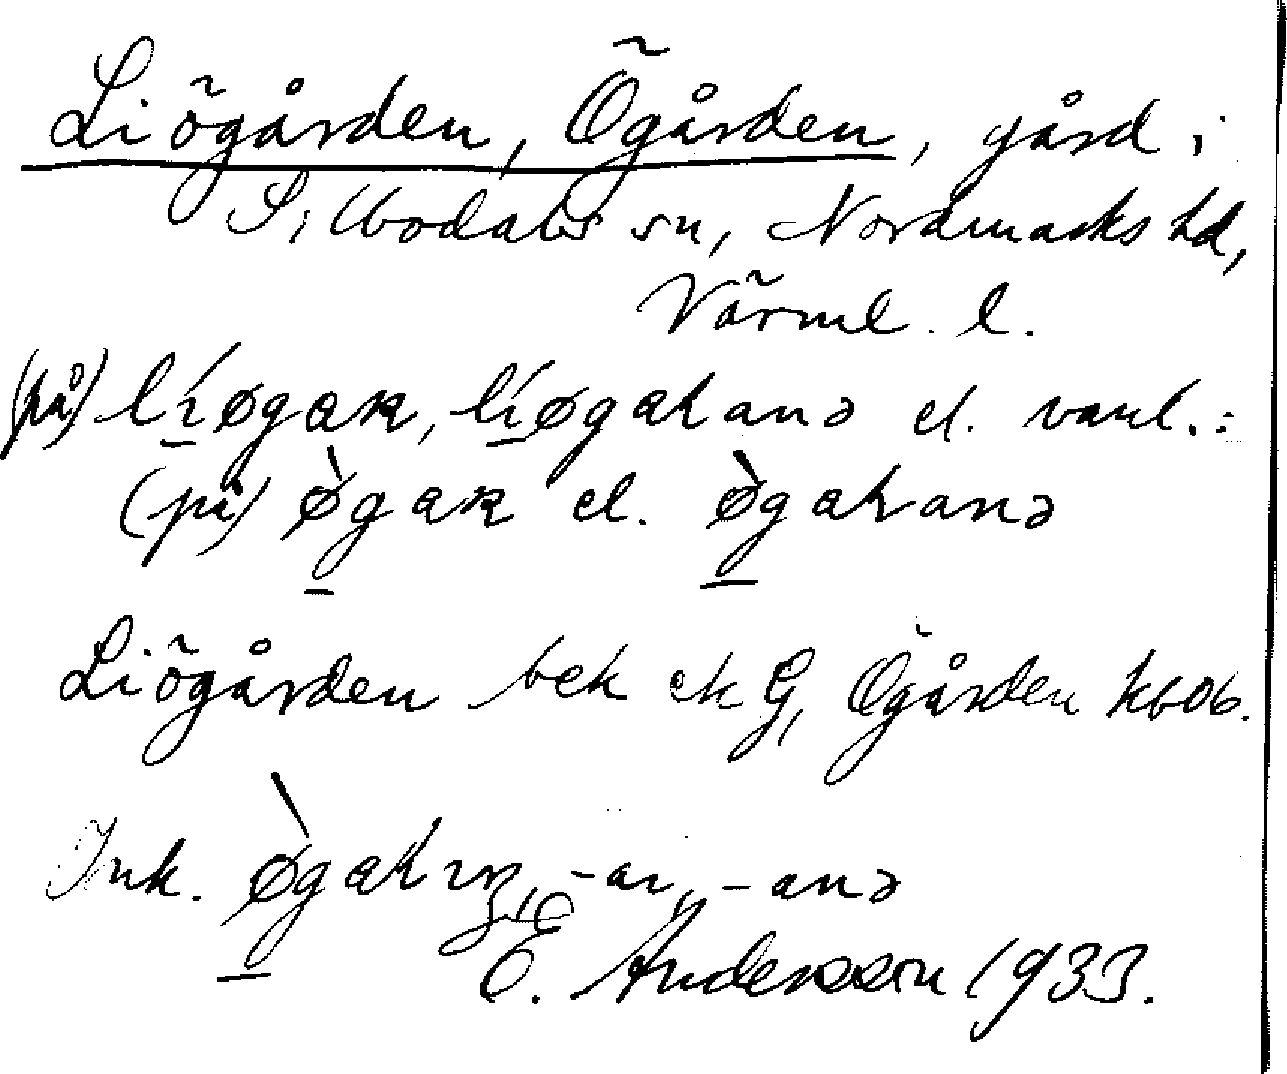 Liögården, Ögården, gård i
Silbodals sn, Nordmarks hd,
Värml. l.
(på) líøgaʀ, líøgaɦanə el. vanl.:
(på) ø̀gaʀ el. ø̀gaɦanə
Liögården bek ek G, Ögården kb06.
Ink. ø̀gaɦ -ar, -anə
E. Andersson 1933.